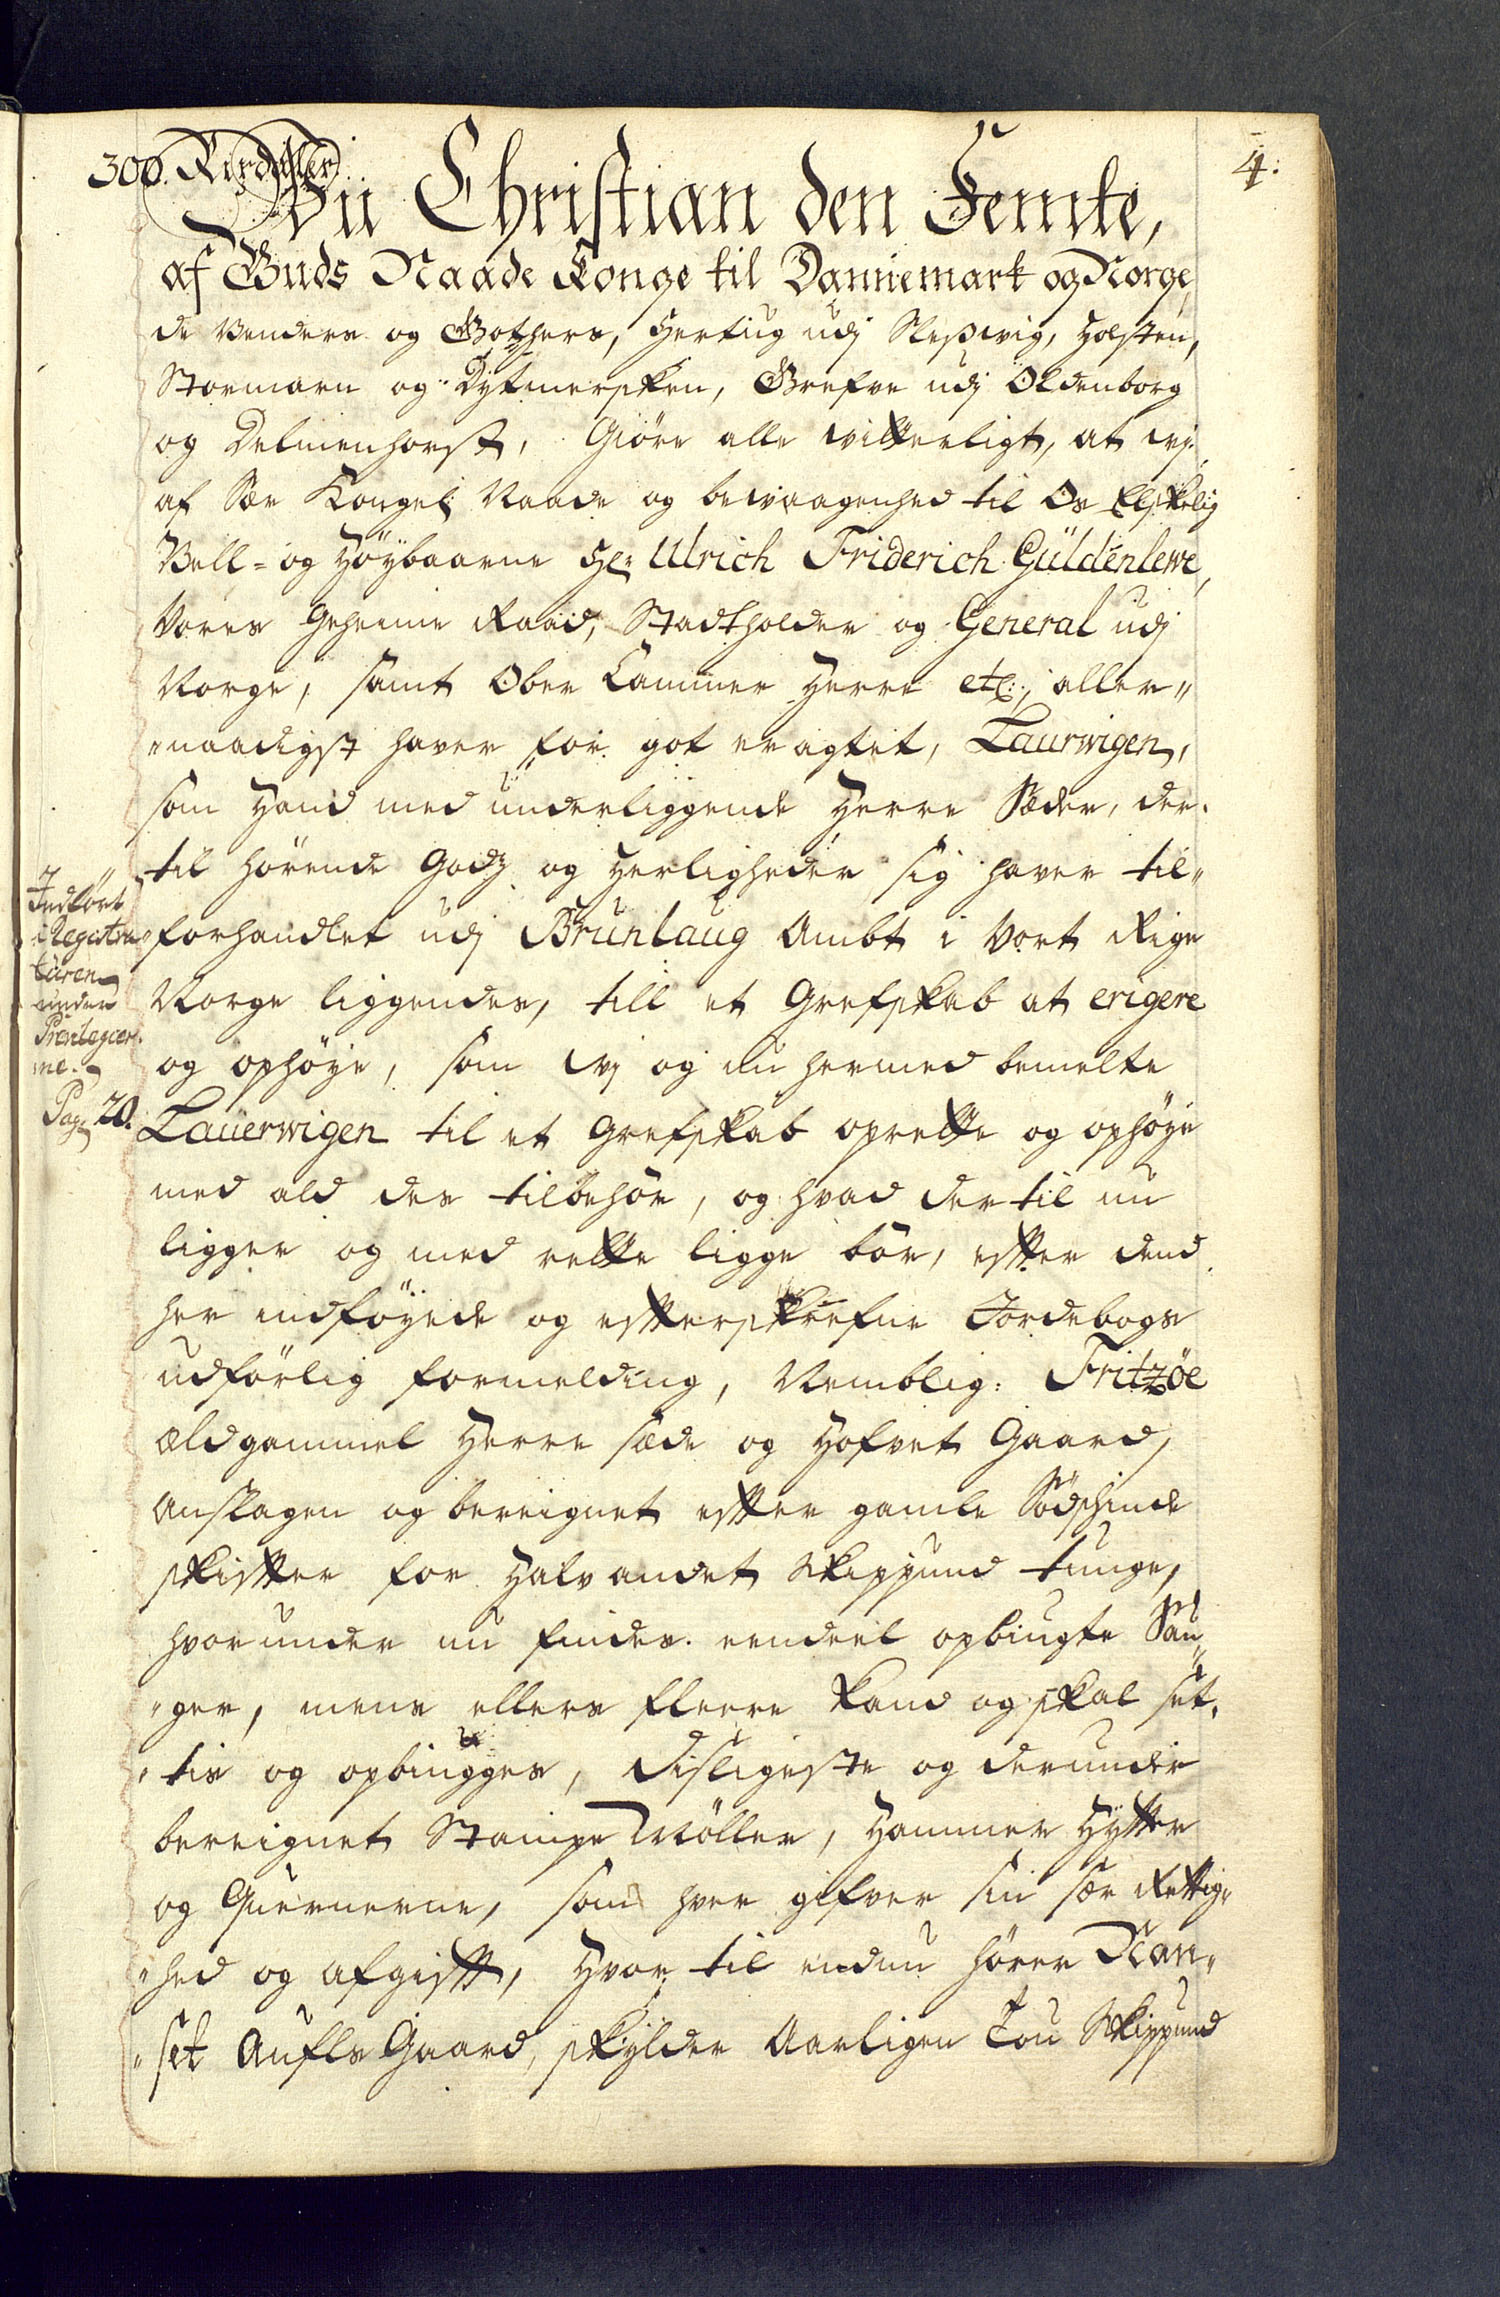 4:
300. Rixdahler
Wii Christian den Femte,
af Guds Naade Konge til Dannemark og Norge,
de Venders og Gothers, Hertug udj Slesswig, Holsten,
Stormarn og Dytmersken, Grefve udj Oldenborg
og Delmenhorst, Giöre alle vitterligt, at vj
af Sær Kongel: Naade og bevaagenhed til Os Elskelig
Vell- og Höybaarne Hr: Ulrich Friderich Güldenlewe,
Vores Geheime Raad, Stadtholder og General udj
Norge, samt Ober Cammer Herre etc:, aller„
„naadigst haver for got eragtet, Laurwigen,
som Hand med underliggende Herre Sæder, der„
til hörende Godz og Herligheder sig haver til„
forhandlet udj Brunlaug Ambt i Vort Rige
Norge liggendes, till et Grefskab at erigere
og ophöye, som Vj og nu hermed bemelte
Lauerwigen til et Grefskab oprette og ophöye
med ald des tilbehör, og hvad dertil nu
ligger og med rette ligge bör, efter dend
her indföyede og efterskrefne Jordebogs
udförlig formelding, Nemblig: Fritzöe
ældgammel Herre sæde og Hofvet Gaard,
Anslagen og bereignet efter gamle Södschinde
skifter for Halvandet Skippund tunge,
hvorunder nu findes eendeel opbiugte Sau„
„ger, mens ellers fleere kand og skal sæt„
„tis og opbiugges, disligeste og derunder
bereignet Stampe Möller, Hammer Hytter
og Quernerne, som hver gifver sin sær Rettig„
„hed og afgift, Hvor til endnu hörer Nan„
„set Aufls Gaard, skylder Aarligen Tou Skippund
Indfört
i Registra„
turen
under
Privilegier„
ne.
Pag: 20.